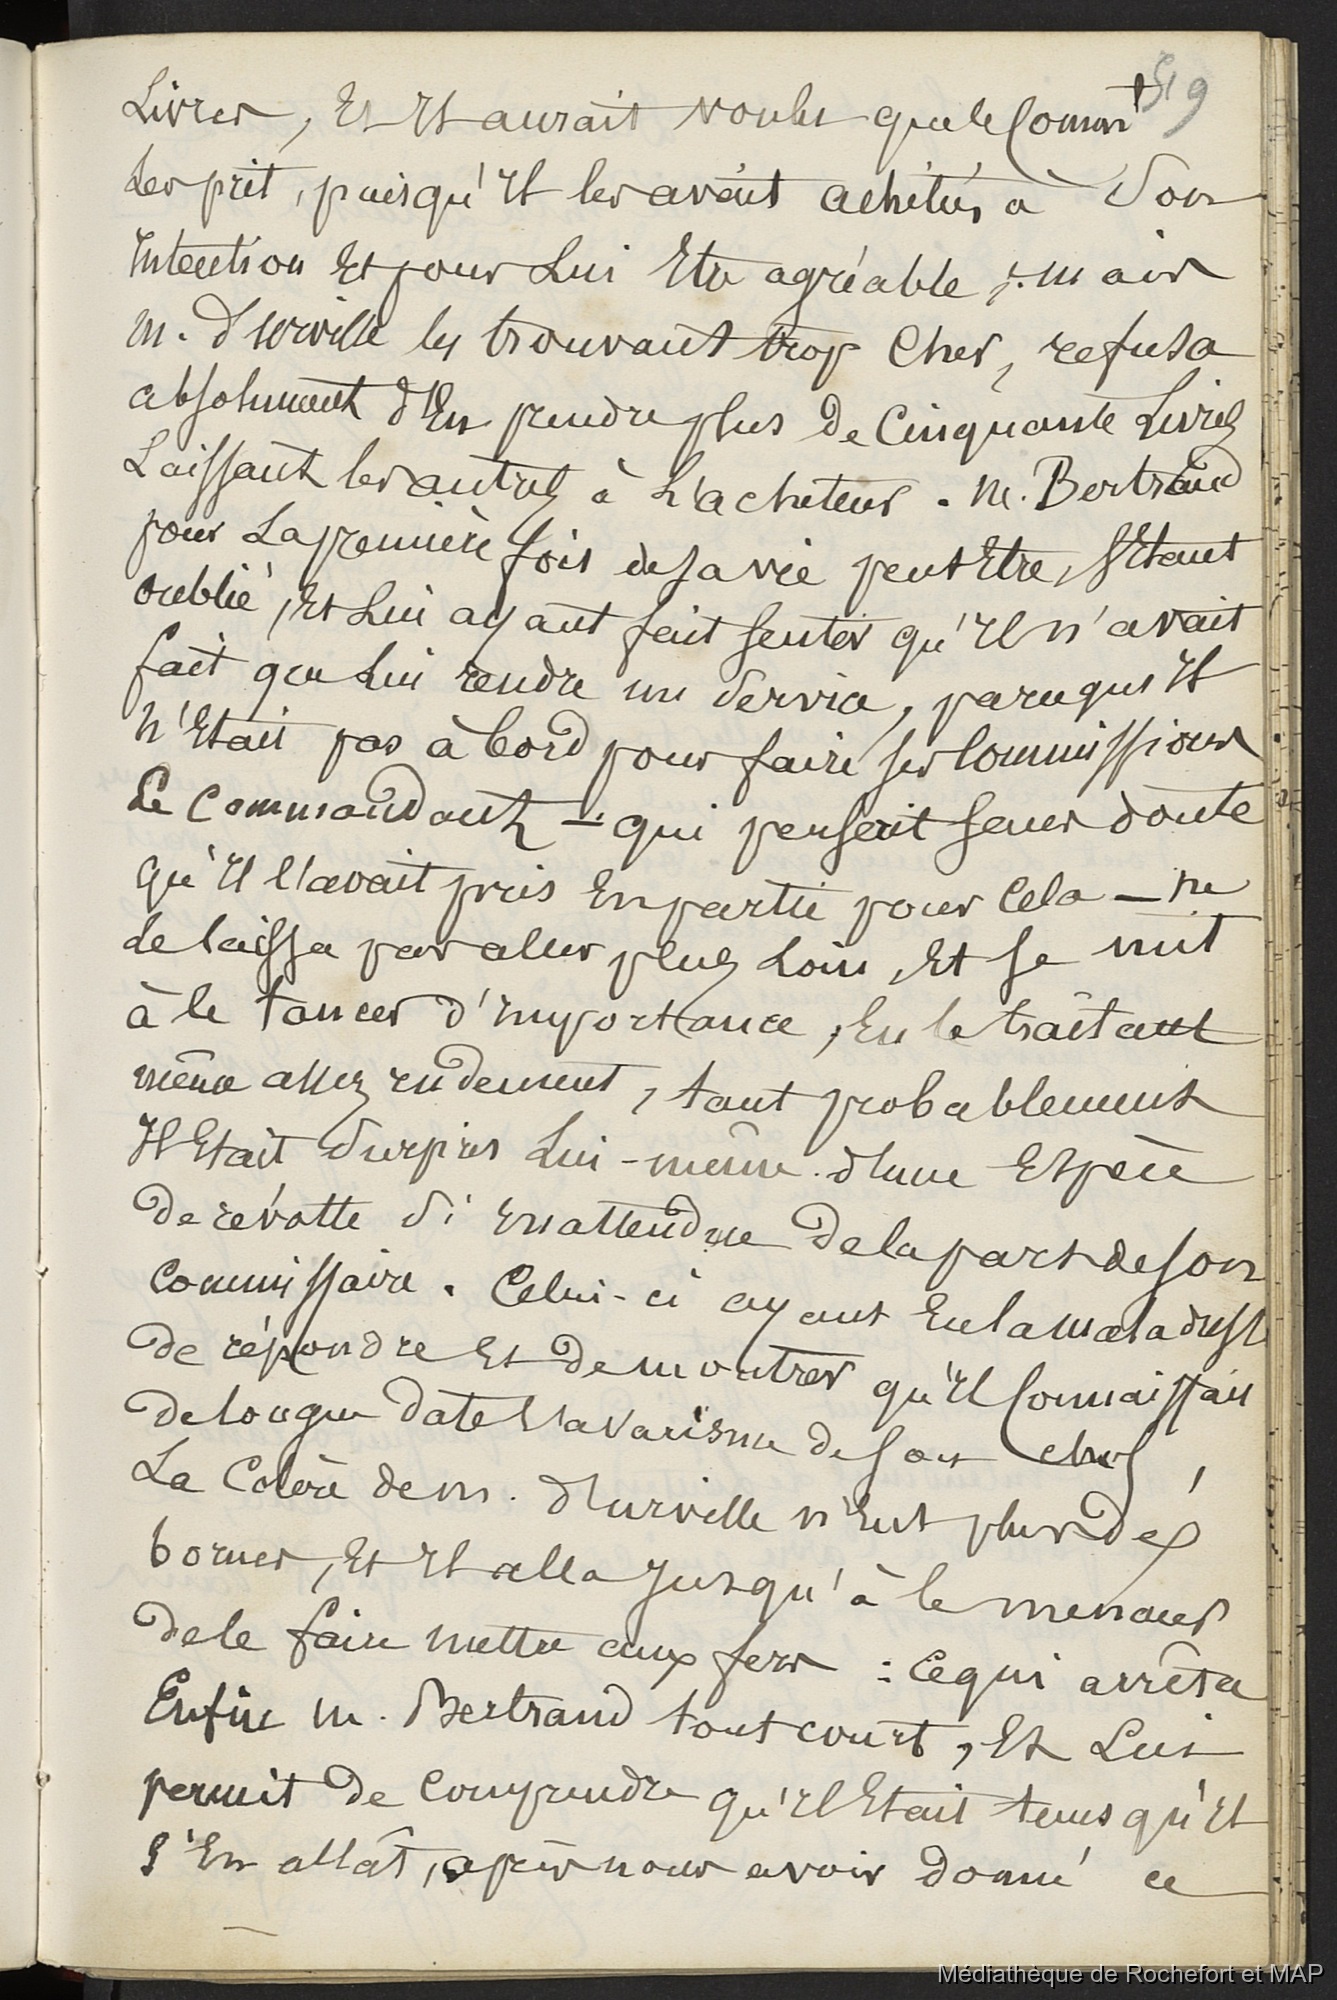 519
Livres, Et Il aurait voulu que le Comm^t
les prit, puisqu'Il les avait achetés à Son
Intention Et pour Lui Etre agréable ; mais
m. d'Urville les trouvant trop Cher, refusa
absolument d'En prendre plus de Cinquante Livres
Laissant les autres à L'acheteur. M. Bertrand
pour La première fois de sa vie peut Etre, S'Etant
oublié, Et Lui ayant fait sentir qu'Il n'avait
fait que Lui rendre un Service, parcequ'Il
n'Etait pas à bord pour faire ses Commissions
Le Commandant – qui pensait sans doute
qu'Il l'avait pris En partie pour Cela – ne
Le laissa pas aller plus Loin, Et se mit
à le tancer d'Importance, En le traitant
même assez rudement, tant probablement
Il Etait Surpris Lui-même d'une Espèce
De révolte Si Inattendue De la part de son
Commissaire. Celui-ci ayant Eu la maladresse
De répondre Et De montrer qu'Il Connaissait
De longue Date l'avarisme De Son Chef,
La Colère de m. d'Urville n'Eut plus De
bornes, Et Il alla Jusqu'à le menacer
De le faire mettre aux fers : Ce qui arrêta
Enfin M. Bertrand tout court, Et Lui
permit De Comprendre qu'Il Etait tems qu'Il
s'En allât, après nous avoir Donné ce
Médiathèque de Rochefort et MAP